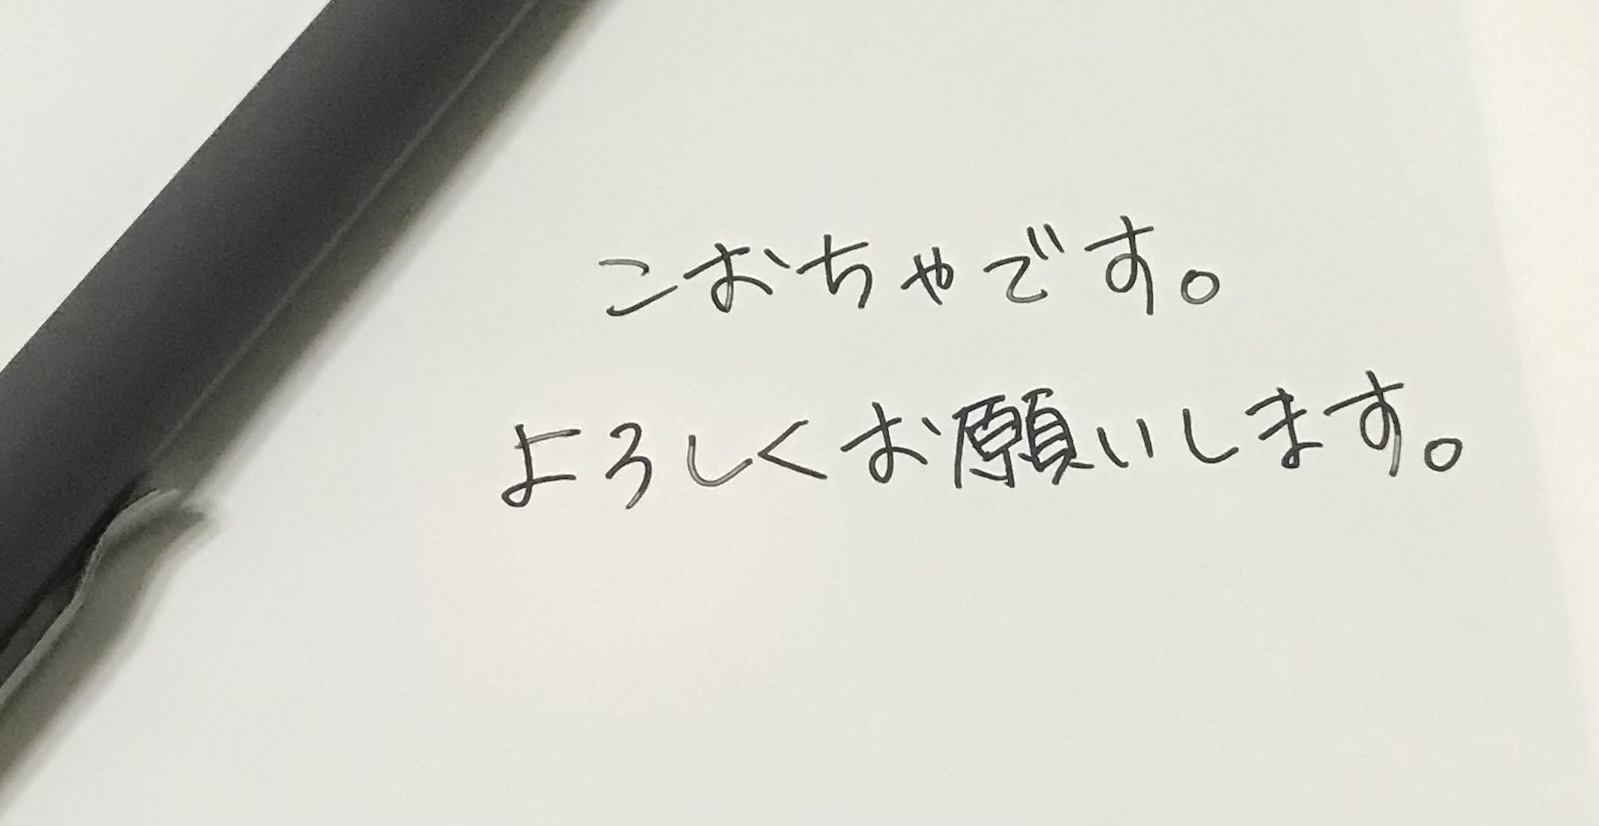 こおちゃです。
よろしくお願いします。